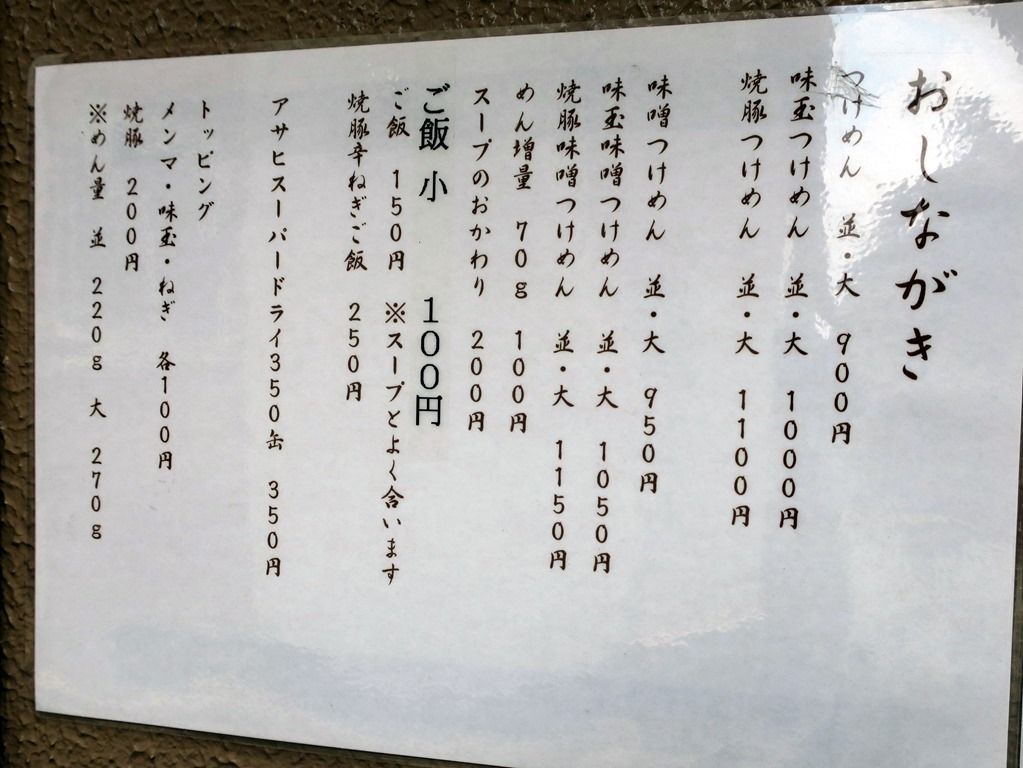 おしながき
つけめん 並・大 900円
味玉つけめん 並・大 1000円
焼豚つけめん 並・大 1100円
味噌つけめん 並・大 950円
味玉味噌つけめん 並・大 1050円
焼豚味噌つけめん 並・大 1150円
めん増量 70g 100円
スープのおかわり 200円
ご飯 小 100円
ご飯 150円 ※スープとよく合います
焼豚辛ねぎご飯 250円
アサヒスーパードライ350缶 350円
トッピング
メンマ・味玉・ねぎ 各100円
焼豚 200円
※めん量 並 220g 大 270g